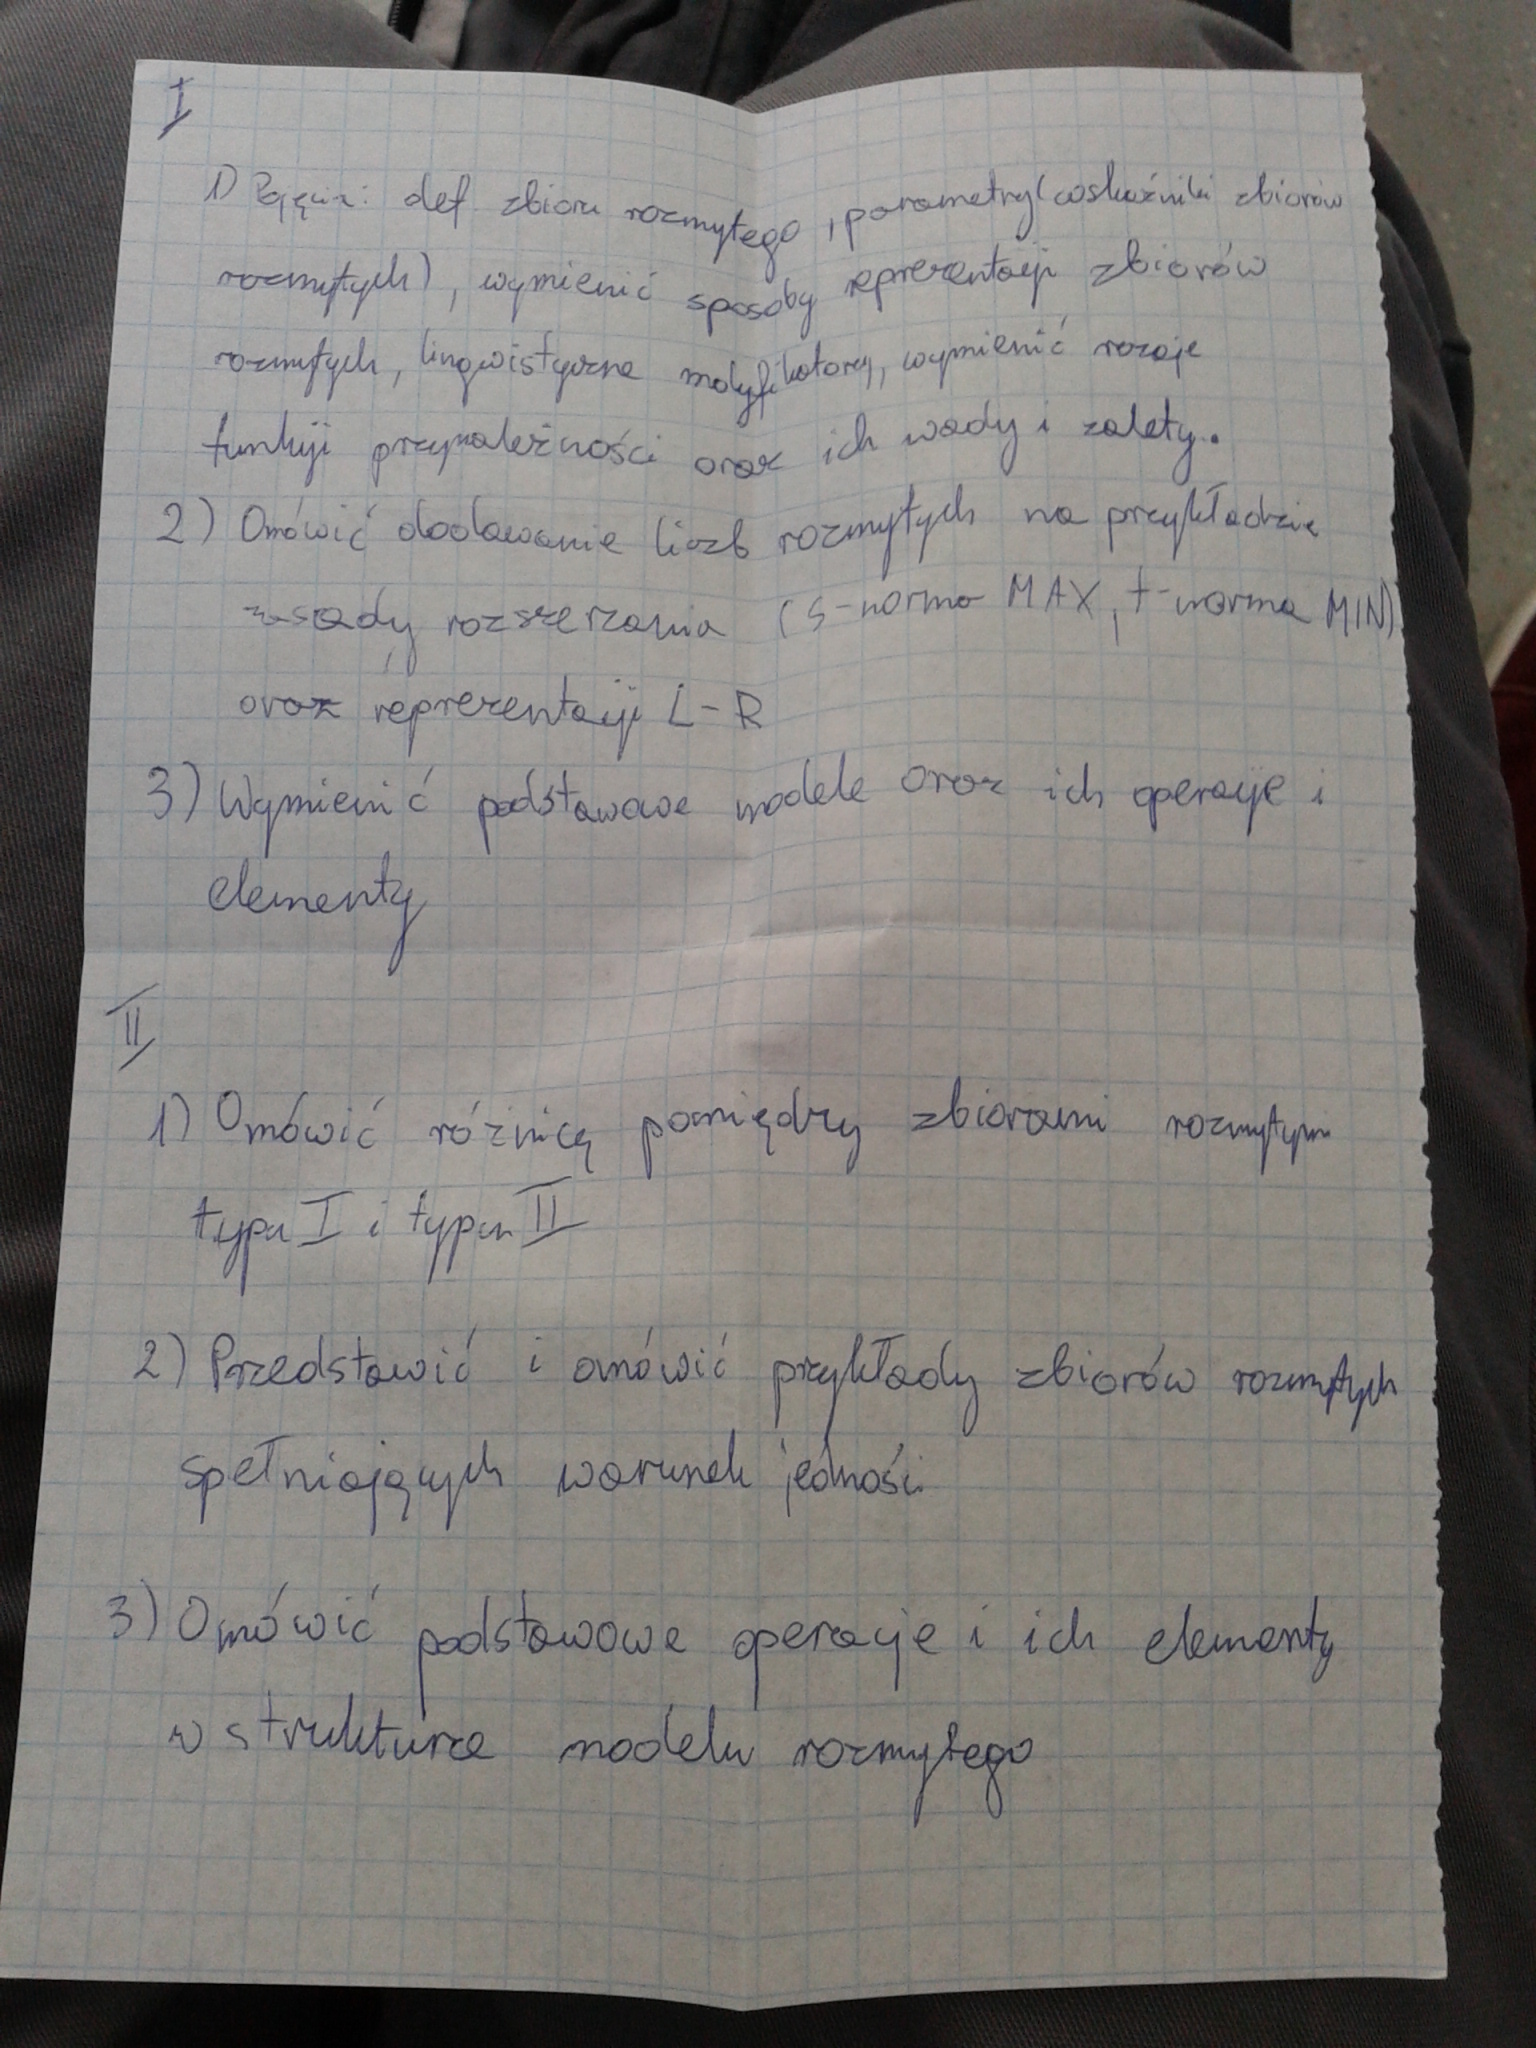 I
1) Pojęcia: def. zbioru rozmytego, parametry (wskaźniki zbiorów
rozmytych), wymienić sposoby reprezentacji zbiorów
rozmytych, lingwistyczne modyfikatory, wymienić rozaje
funkcji przynależności oraz ich wady i zalety.
2) Omówić dodawanie liczb rozmytych na przykładzie
zasady rozszerzania (s-norma MAX, t-norma MIN)
oraz reprezentacji L-R
3) Wymienić podstawowe modele oraz ich operacje i
elementy
II
1) Omówić różnicę pomiędzy zbiorami rozmytymi
typu I i typu II
2) Przedstawić i omówić przykłady zbiorów rozmytych
spełniających warunek jedności
3) Omówić podstawowe operacje i ich elementy
w strukturze modelu rozmytego